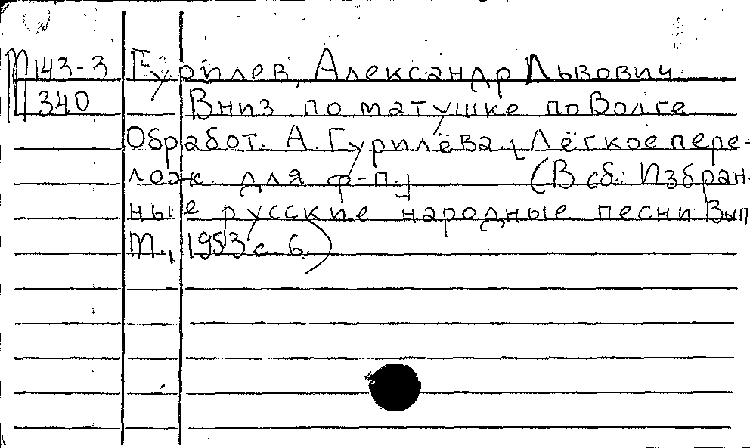 М143-3 Гурилев, Александр Львович
Ц340 Вниз по матушке по Волге
Обработ. А. Гурилёва. [Лёгкое пере-
лож. для ф-п.] (В сб.: Избран-
ные русские народные песни Вып
М., 1953 с. 6.)